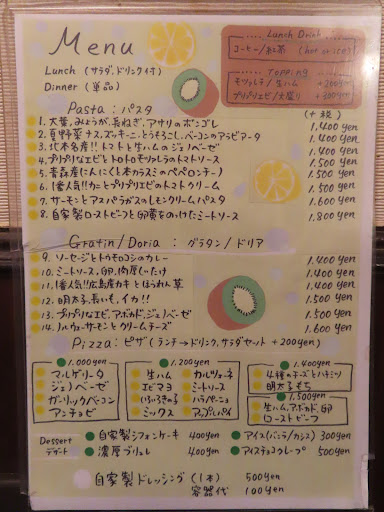 Menu
Lunch (サラダ,ドリンク付)
Dinner (単品)
Lunch Drink
コーヒー/紅茶 (hot or ice)
Topping
モッツァレラ/生ハム +300yen
プリプリエビ/大盛り +300yen
Pasta : パスタ
(+税)
1. 大葉,みょうが,長ねぎ,アサリのボンゴレ 1,400yen
2. 夏野菜ナス,ズッキーニ,とうもろこし,ベーコンのアラビアータ 1,400yen
3. 北本名産!!トマトと生ハムのジェノベーゼ 1,400yen
4. プリプリなエビとトロトロモッツァレラのトマトソース 1,400yen
5. 青森産にんにくと本カラスミのペペロンチーノ 1,500yen
6. 1番人気!!カニとプリプリエビのトマトクリーム 1,500yen
7. サーモンとアスパラガスのレモンクリームパスタ 1,600yen
8. 自家製ローストビーフと卵黄をのっけたミートソース 1,800yen
Gratin/Doria : グラタン/ドリア
9. ソーセージとトウモロコシのカレー 1,400yen
10. ミートソース,卵,肉厚しいたけ 1,400yen
11. 1番人気!!広島産カキとほうれん草 1,400yen
12. 明太子,長いも,イカ!! 1,500yen
13. プリプリなエビ,アボカド,ジェノベーゼ 1,500yen
14. ノルウェーサーモンとクリームチーズ 1,600yen
Pizza : ピザ (ランチ→ドリンク,サラダセット +200yen)
1,000yen
マルゲリータ
ジェノベーゼ
ガーリックベーコン
アンチョビ
1,200yen
生ハム カルツォーネ
エビマヨ ミートソース
いぶりきの子 ハラペーニョ
ミックス アップルパイ
1,400yen
4種のチーズとハチミツ
明太子もち
1,500yen
生ハム,アボカド,卵
ローストビーフ
Dessert デザート
自家製シフォンケーキ 400yen アイス(バニラ/カシス) 300yen
濃厚ブリュレ 400yen アイスチョコクレープ 500yen
自家製ドレッシング (1本) 500yen
容器代 100yen